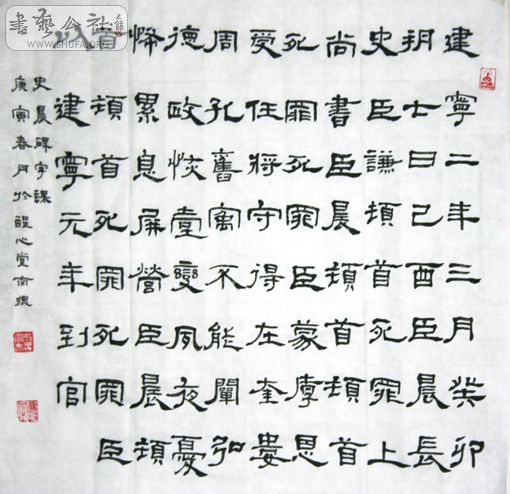 建寧二年三月癸卯
朔七日己酉臣晨長
史臣謙頓首死罪上
尚書臣晨頓首頓首
死罪死罪臣蒙厚恩
受任符守得在奎婁
周孔舊寓不能闡弘
德政恢壹變夙夜憂
怖累息屏營臣晨頓
首頓首死罪死罪臣
以建寧元年到官
史晨碑字課
庚寅春月於醒心堂南
書藝公社
WWW.SHUFA.ORG